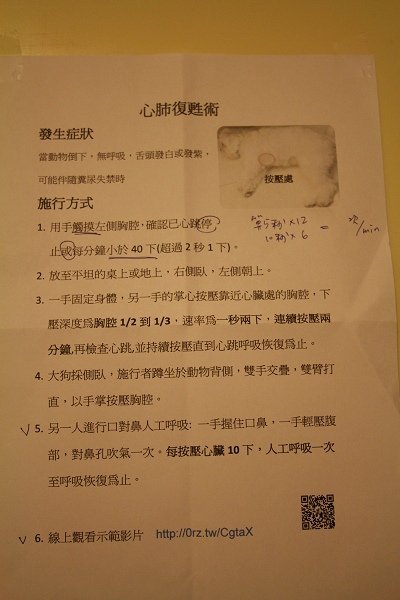 心肺復甦術
發生症狀
當動物倒下，無呼吸，舌頭發白或發紫，
可能伴隨糞尿失禁時
按壓處
施行方式
1. 用手觸摸左側胸腔，確認已心跳停
止或每分鐘小於 40 下(超過 2 秒 1 下)。
算5秒 x 12
10秒 x 6 = 次/min
2. 放至平坦的桌上或地上，右側臥，左側朝上。
3. 一手固定身體，另一手的掌心按壓靠近心臟處的胸腔，下
壓深度為胸腔 1/2 到 1/3，速率為一秒兩下，連續按壓兩
分鐘,再檢查心跳,並持續按壓直到心跳呼吸恢復為止。
4. 大狗採側臥，施行者蹲坐於動物背側，雙手交疊，雙臂打
直，以手掌按壓胸腔。
√ 5. 另一人進行口對鼻人工呼吸: 一手握住口鼻，一手輕壓腹
部，對鼻孔吹氣一次。每按壓心臟 10 下，人工呼吸一次
至呼吸恢復為止。
√ 6. 線上觀看示範影片 http://0rz.tw/CgtaX